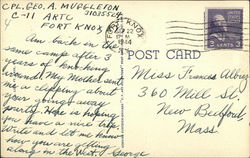 CPL. GEO. A. MUPLETON
C-11 ARTC
FORT KNOX
Am back in the
same camp after 3
years of knocking
around. My Mother sent
me a clipping about
your going away
party. Hope is hoping
you have a nice trip.
Write and let me know
how you are getting
along in the West. George
FORT KNOX
1944
POST CARD
3 CENTS 3
Miss Frances
360 Mill St.
New Bedford,
Mass.